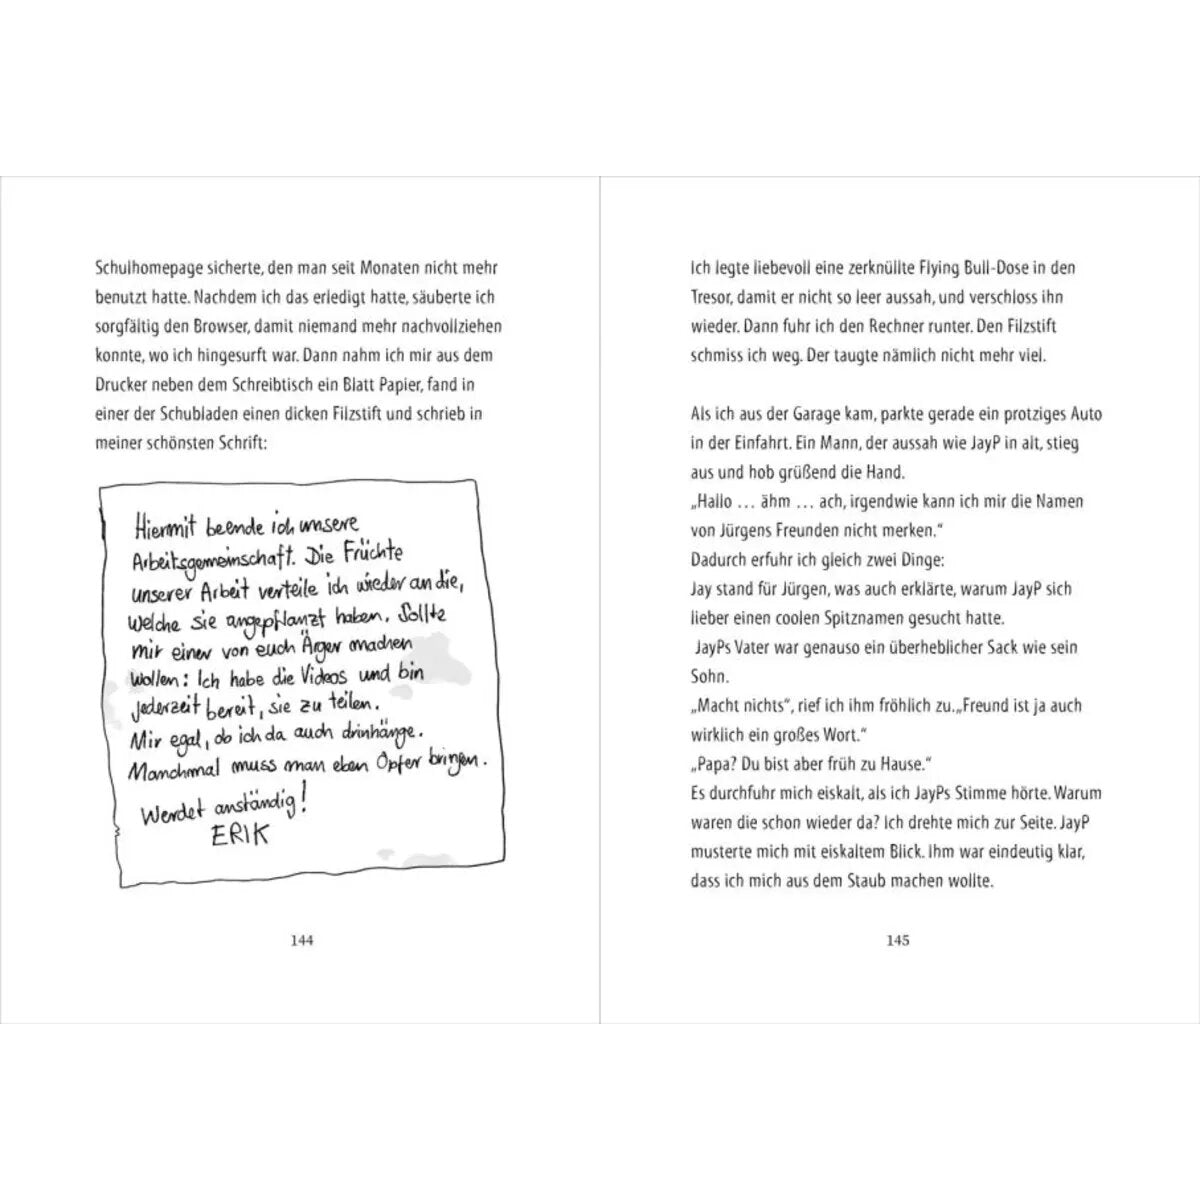 Schulhomepage sicherte, den man seit Monaten nicht mehr
benutzt hatte. Nachdem ich das erledigt hatte, säuberte ich
sorgfältig den Browser, damit niemand mehr nachvollziehen
konnte, wo ich hingesurft war. Dann nahm ich mir aus dem
Drucker neben dem Schreibtisch ein Blatt Papier, fand in
einer der Schubladen einen dicken Filzstift und schrieb in
meiner schönsten Schrift:
Hiermit beende ich unsere
Arbeitsgemeinschaft. Die Früchte
unserer Arbeit verteile ich wieder an die,
welche sie angepflanzt haben. Sollte
mir einer von euch Ärger machen
wollen: Ich habe die Videos und bin
jederzeit bereit, sie zu teilen.
Mir egal, ob ich da auch drinhänge.
Manchmal muss man eben Opfer bringen.
Werdet anständig!
ERIK
144
Ich legte liebevoll eine zerknüllte Flying Bull-Dose in den
Tresor, damit er nicht so leer aussah, und verschloss ihn
wieder. Dann fuhr ich den Rechner runter. Den Filzstift
schmiss ich weg. Der taugte nämlich nicht mehr viel.
Als ich aus der Garage kam, parkte gerade ein protziges Auto
in der Einfahrt. Ein Mann, der aussah wie JayP in alt, stieg
aus und hob grüßend die Hand.
„Hallo … ähm … ach, irgendwie kann ich mir die Namen
von Jürgens Freunden nicht merken.“
Dadurch erfuhr ich gleich zwei Dinge:
Jay stand für Jürgen, was auch erklärte, warum JayP sich
lieber einen coolen Spitznamen gesucht hatte.
JayPs Vater war genauso ein überheblicher Sack wie sein
Sohn.
„Macht nichts“, rief ich ihm fröhlich zu. „Freund ist ja auch
wirklich ein großes Wort.“
„Papa? Du bist aber früh zu Hause.“
Es durchfuhr mich eiskalt, als ich JayPs Stimme hörte. Warum
waren die schon wieder da? Ich drehte mich zur Seite. JayP
musterte mich mit eiskaltem Blick. Ihm war eindeutig klar,
dass ich mich aus dem Staub machen wollte.
145